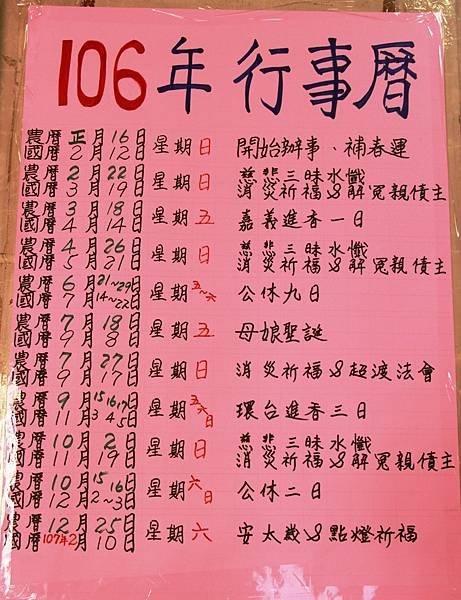 106年行事曆
農曆 正月16日 星期日 開始辦事、補春運
國曆 2月12日
農曆 2月22日 星期日 慈悲三昧水懺
國曆 3月19日 消災祈福&解冤親債主
農曆 3月18日 星期五 嘉義進香一日
國曆 4月14日
農曆 4月26日 星期日 慈悲三昧水懺
國曆 5月21日 消災祈福&解冤親債主
農曆 6月21~29日 星期五~六 公休九日
國曆 7月14~22日
農曆 7月18日 星期五 母娘聖誕
國曆 9月8日
農曆 7月27日 星期日 消災祈福&超渡法會
國曆 9月17日
農曆 9月15 16 17日 星期五六日 環台進香三日
國曆 11月3 4 5日
農曆 10月2日 星期日 慈悲三昧水懺
國曆 11月19日 消災祈福&解冤親債主
農曆 10月15 16日 星期六日 公休二日
國曆 12月2~3日
農曆 12月25日 星期六 安太歲&點燈祈福
國曆 107年2月10日